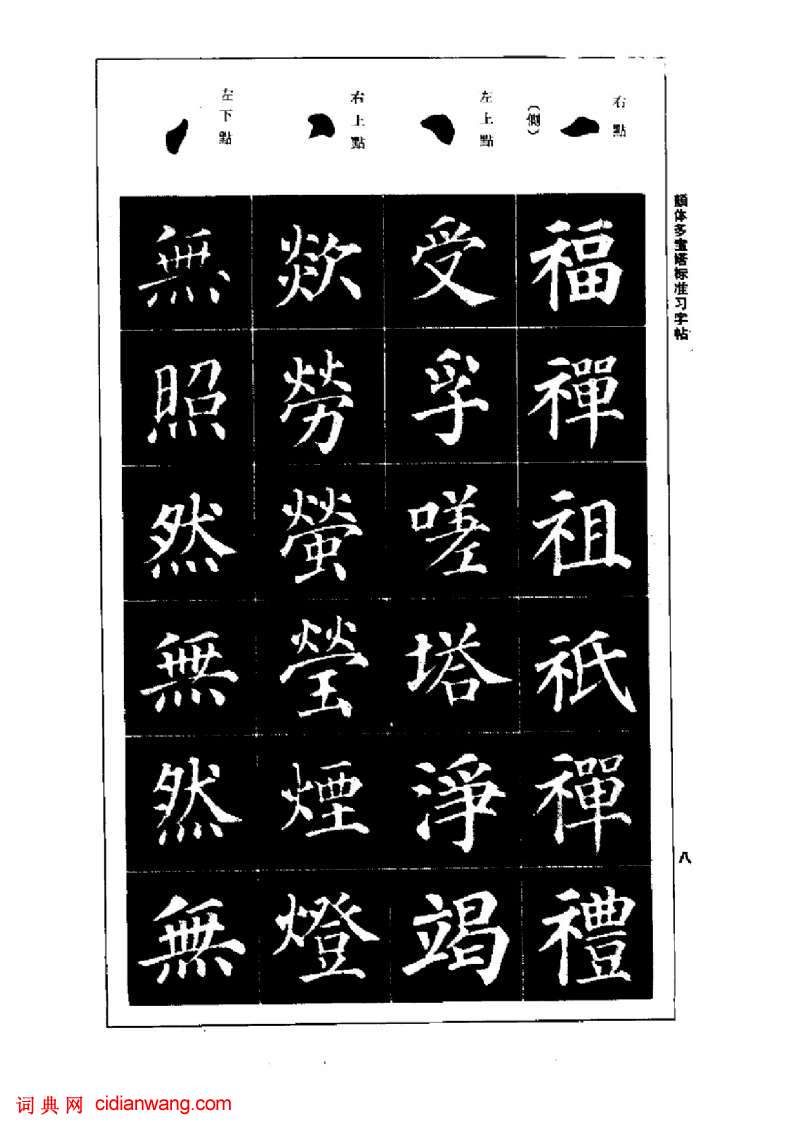 右點
(側)
左上點
右上點
左下點
福禪祖祇禪禮
受孚嗟塔淨竭
欻勞螢瑩煙燈
無照然無然無
顏体多宝塔标准习字帖
八
词典网 cidianwang.com